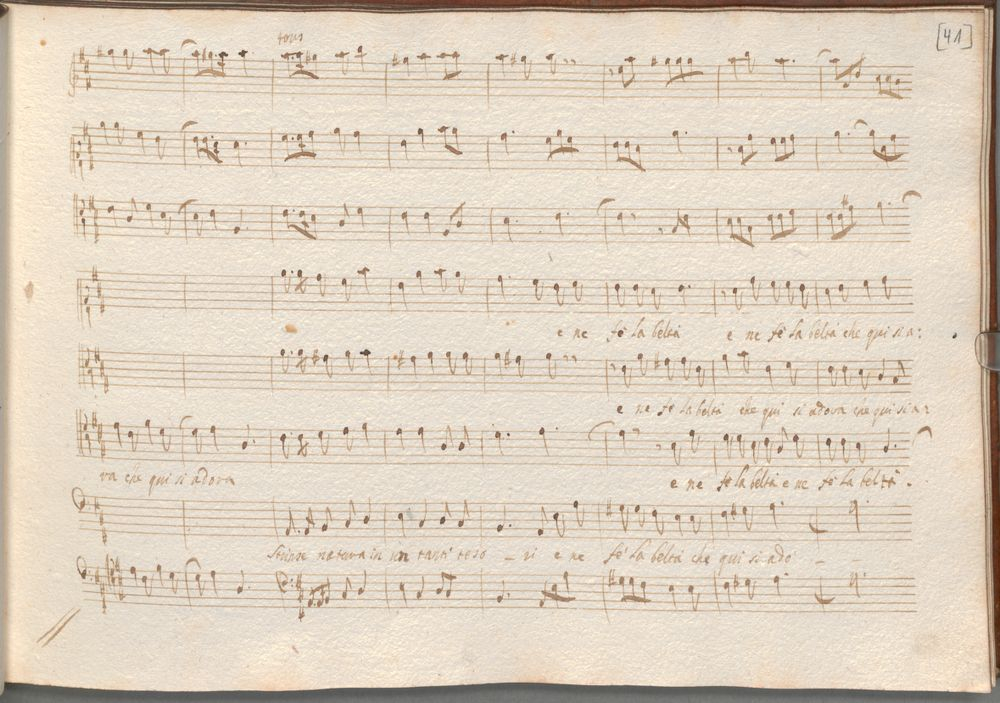 [41]
tous
e ne fè la beltà e ne fè la beltà che qui si a:
e ne fe la beltà che qui si adora che qui si a
va che qui si adora e ne fè la beltà e ne fè la beltà
Strinse natura in un tanti teso - ri e ne fè la beltà che qui si ado - -